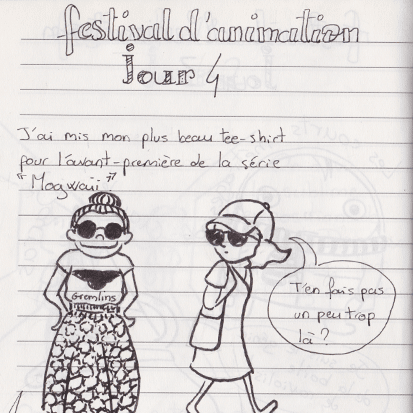 festival d'animation
jour 4
J'ai mis mon plus beau tee-shirt
pour l'avant-première de la série
"Mogwaii"
Gremlins
T'en fais pas
un peu trop
là?